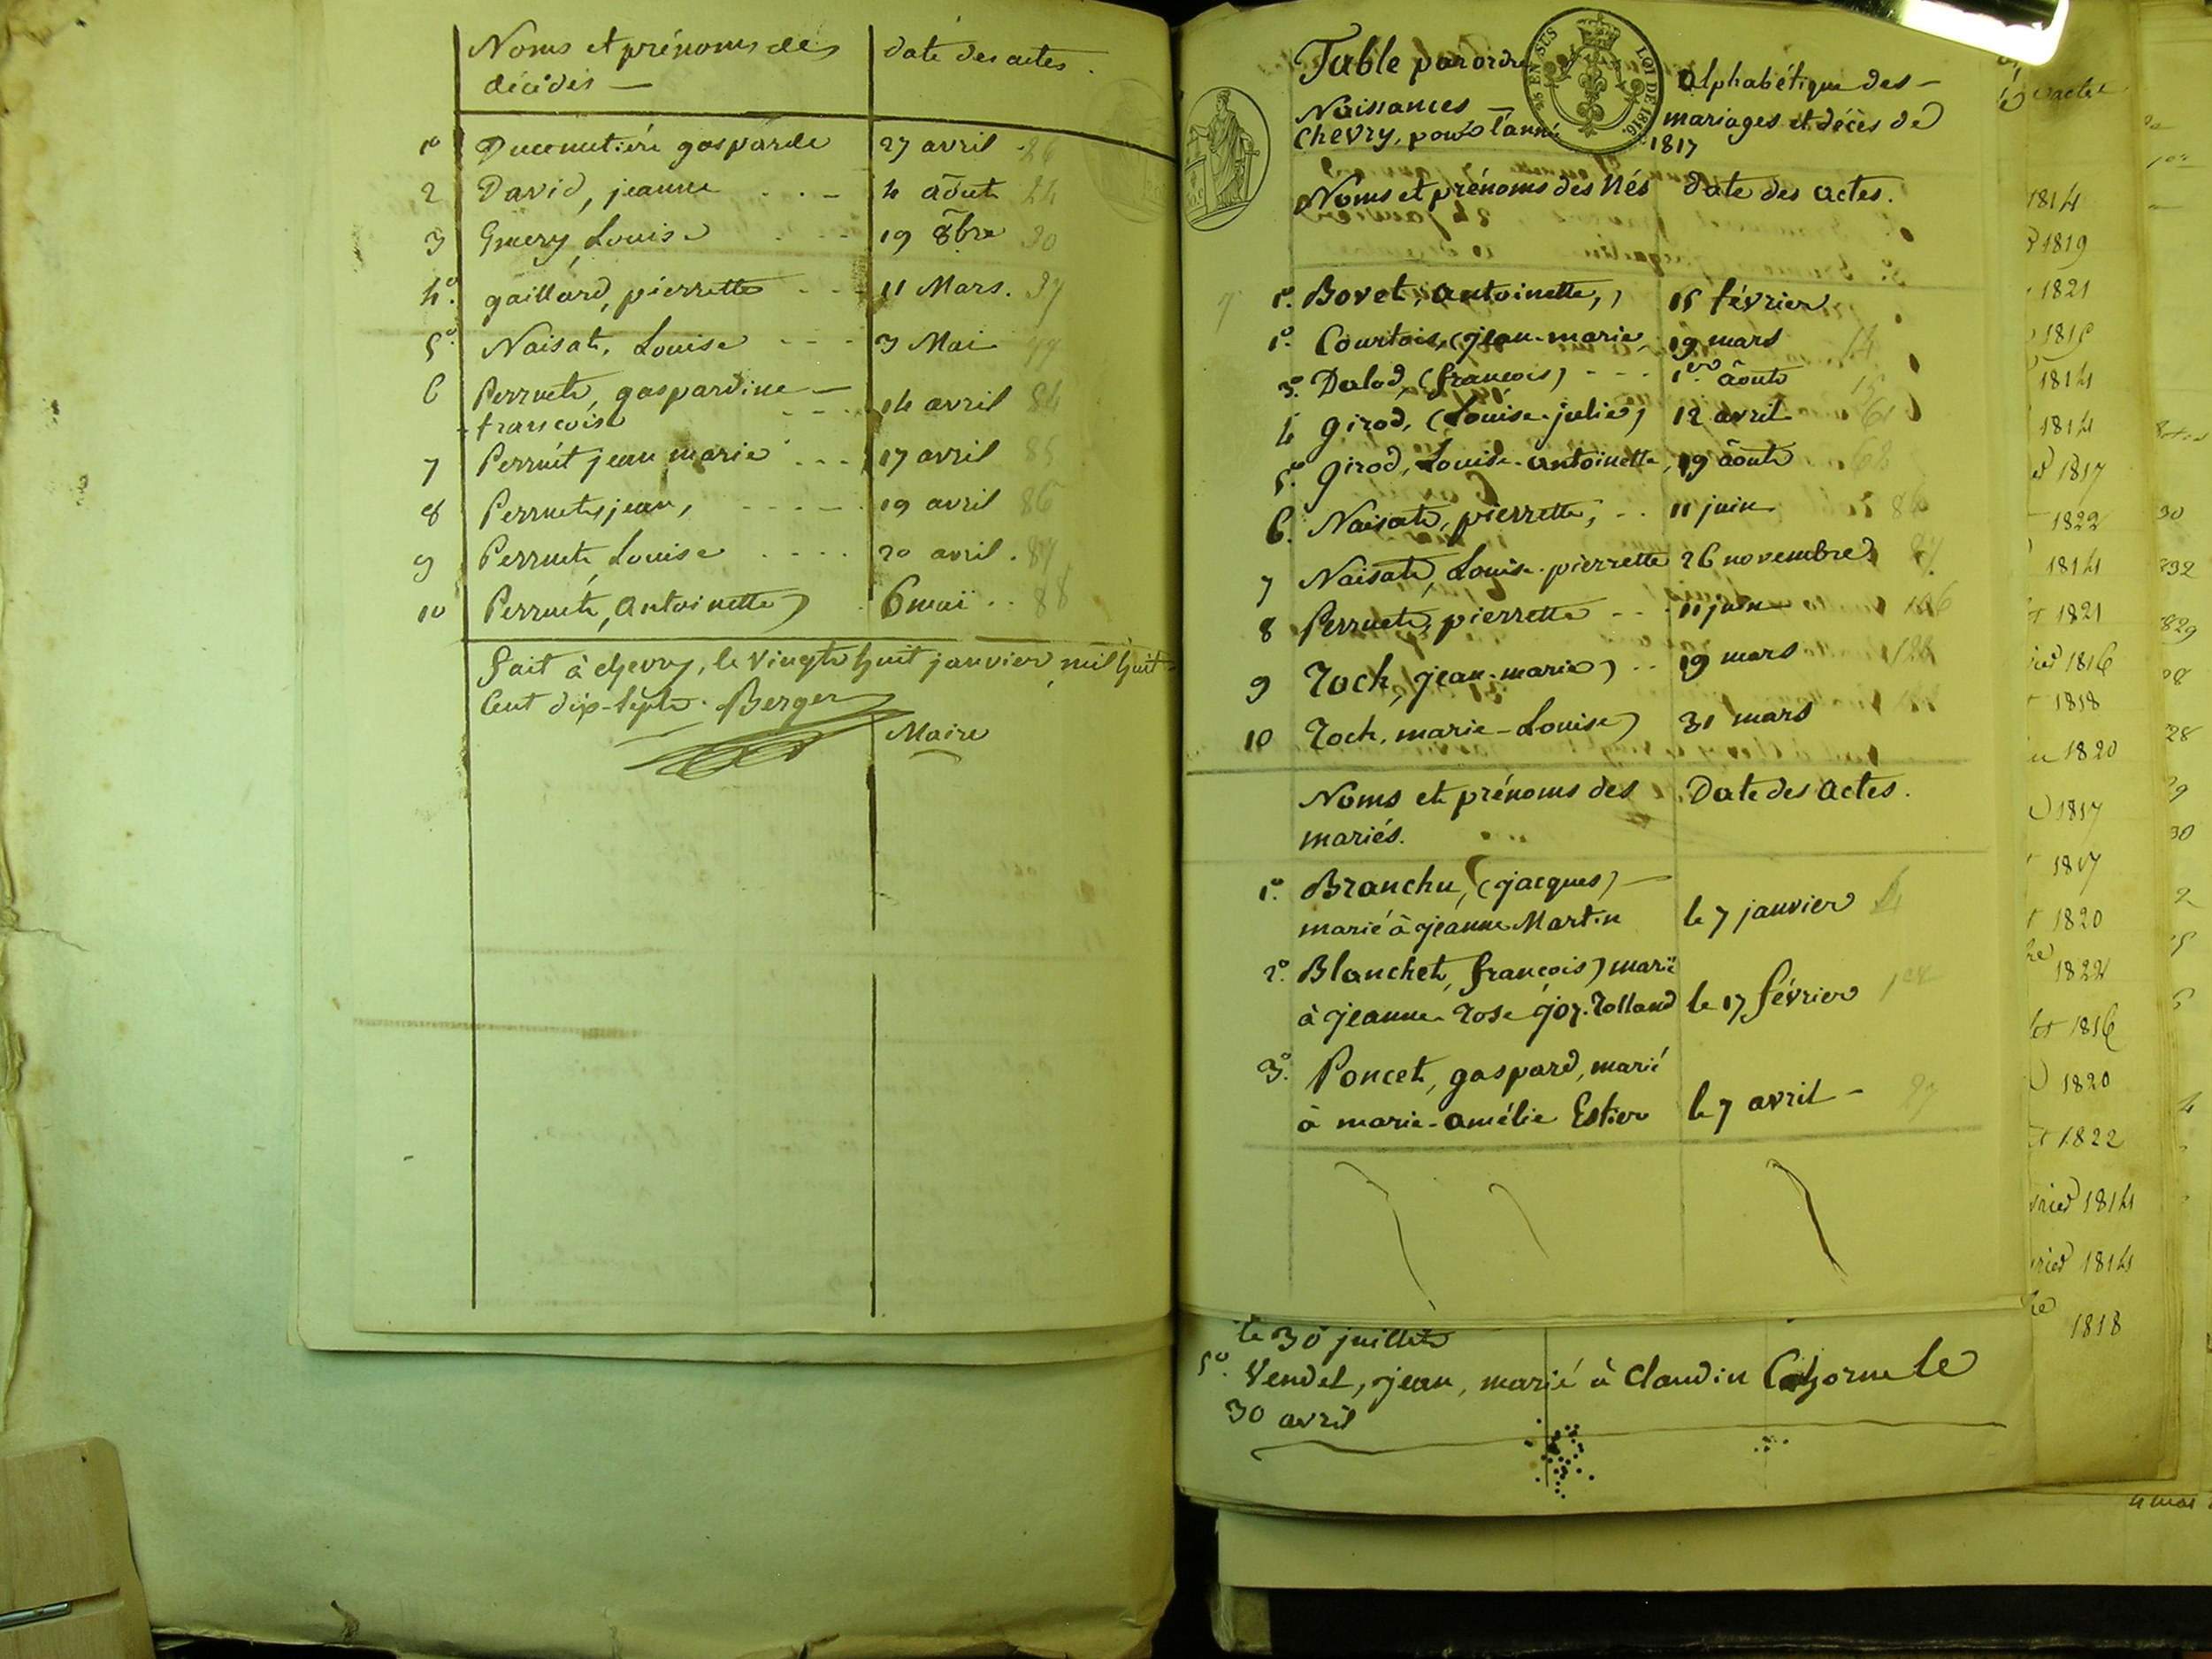 Noms et prénoms des décédés — date des actes.
1º gasparde 27 avril 26
2 David, jeanne 4 août 24
3 Emery, Louise 19 8bre 30
4º. gaillard, pierrette 11 Mars. 37
5º. Naisat, Louise 3 Mai 77
6 Perruet, gaspardine — françoise 14 avril 84
7 Perruet jean marie 17 avril 85
8 Perruet, jean, 19 avril 86
9 Perruet, Louise 20 avril. 87
10 Perruet, Antoinette) 6 mai 88
fait à chevry, le vingt huit janvier, mil huit
Cent dix-sept. Berger
Maire
Table par ordre Alphabétique des —
Naissances — mariages et décès de
Chevry, pour l'année 1817
EN SUS LOI DE 1816.
Noms et prénoms des Nés date des actes.
1º. Bovet, Antoinette, 15 février
1º. Courtois, (jean-marie, 19 mars 14
3º. Dalod, (françois) 1er août 15
4 girod, (Louise-julie) 12 avril 61
5º girod, Louise-Antoinette, 19 août 62
6. Naisat, pierrette, 11 juin 86
7 Naisat, Louise-pierrette 26 novembre 87
8 Perruet, pierrette 11 juin 106
9 Roch, jean-marie) 19 mars 128
10 Roch, marie-Louise) 31 mars
Noms et prénoms des Date des Actes.
mariés.
1º. Branchu, (jacques) —
marié à jeanne Martin le 7 janvier
2º. Blanchet, françois) marié
à jeanne Rose goz-Rolland le 17 février
3º. Poncet, gaspard, marié
à marie-Amélie Estier le 7 avril —
le 30 juillet
5º. Vendel, jean, marié à Claudin le
30 avril
actes
1814
1819
1821
1815
1814
1814
1817
1822
1814
1821
1816
1818
1820
1817
1817
1820
1822
1816
1820
1822
1814
1814
1818